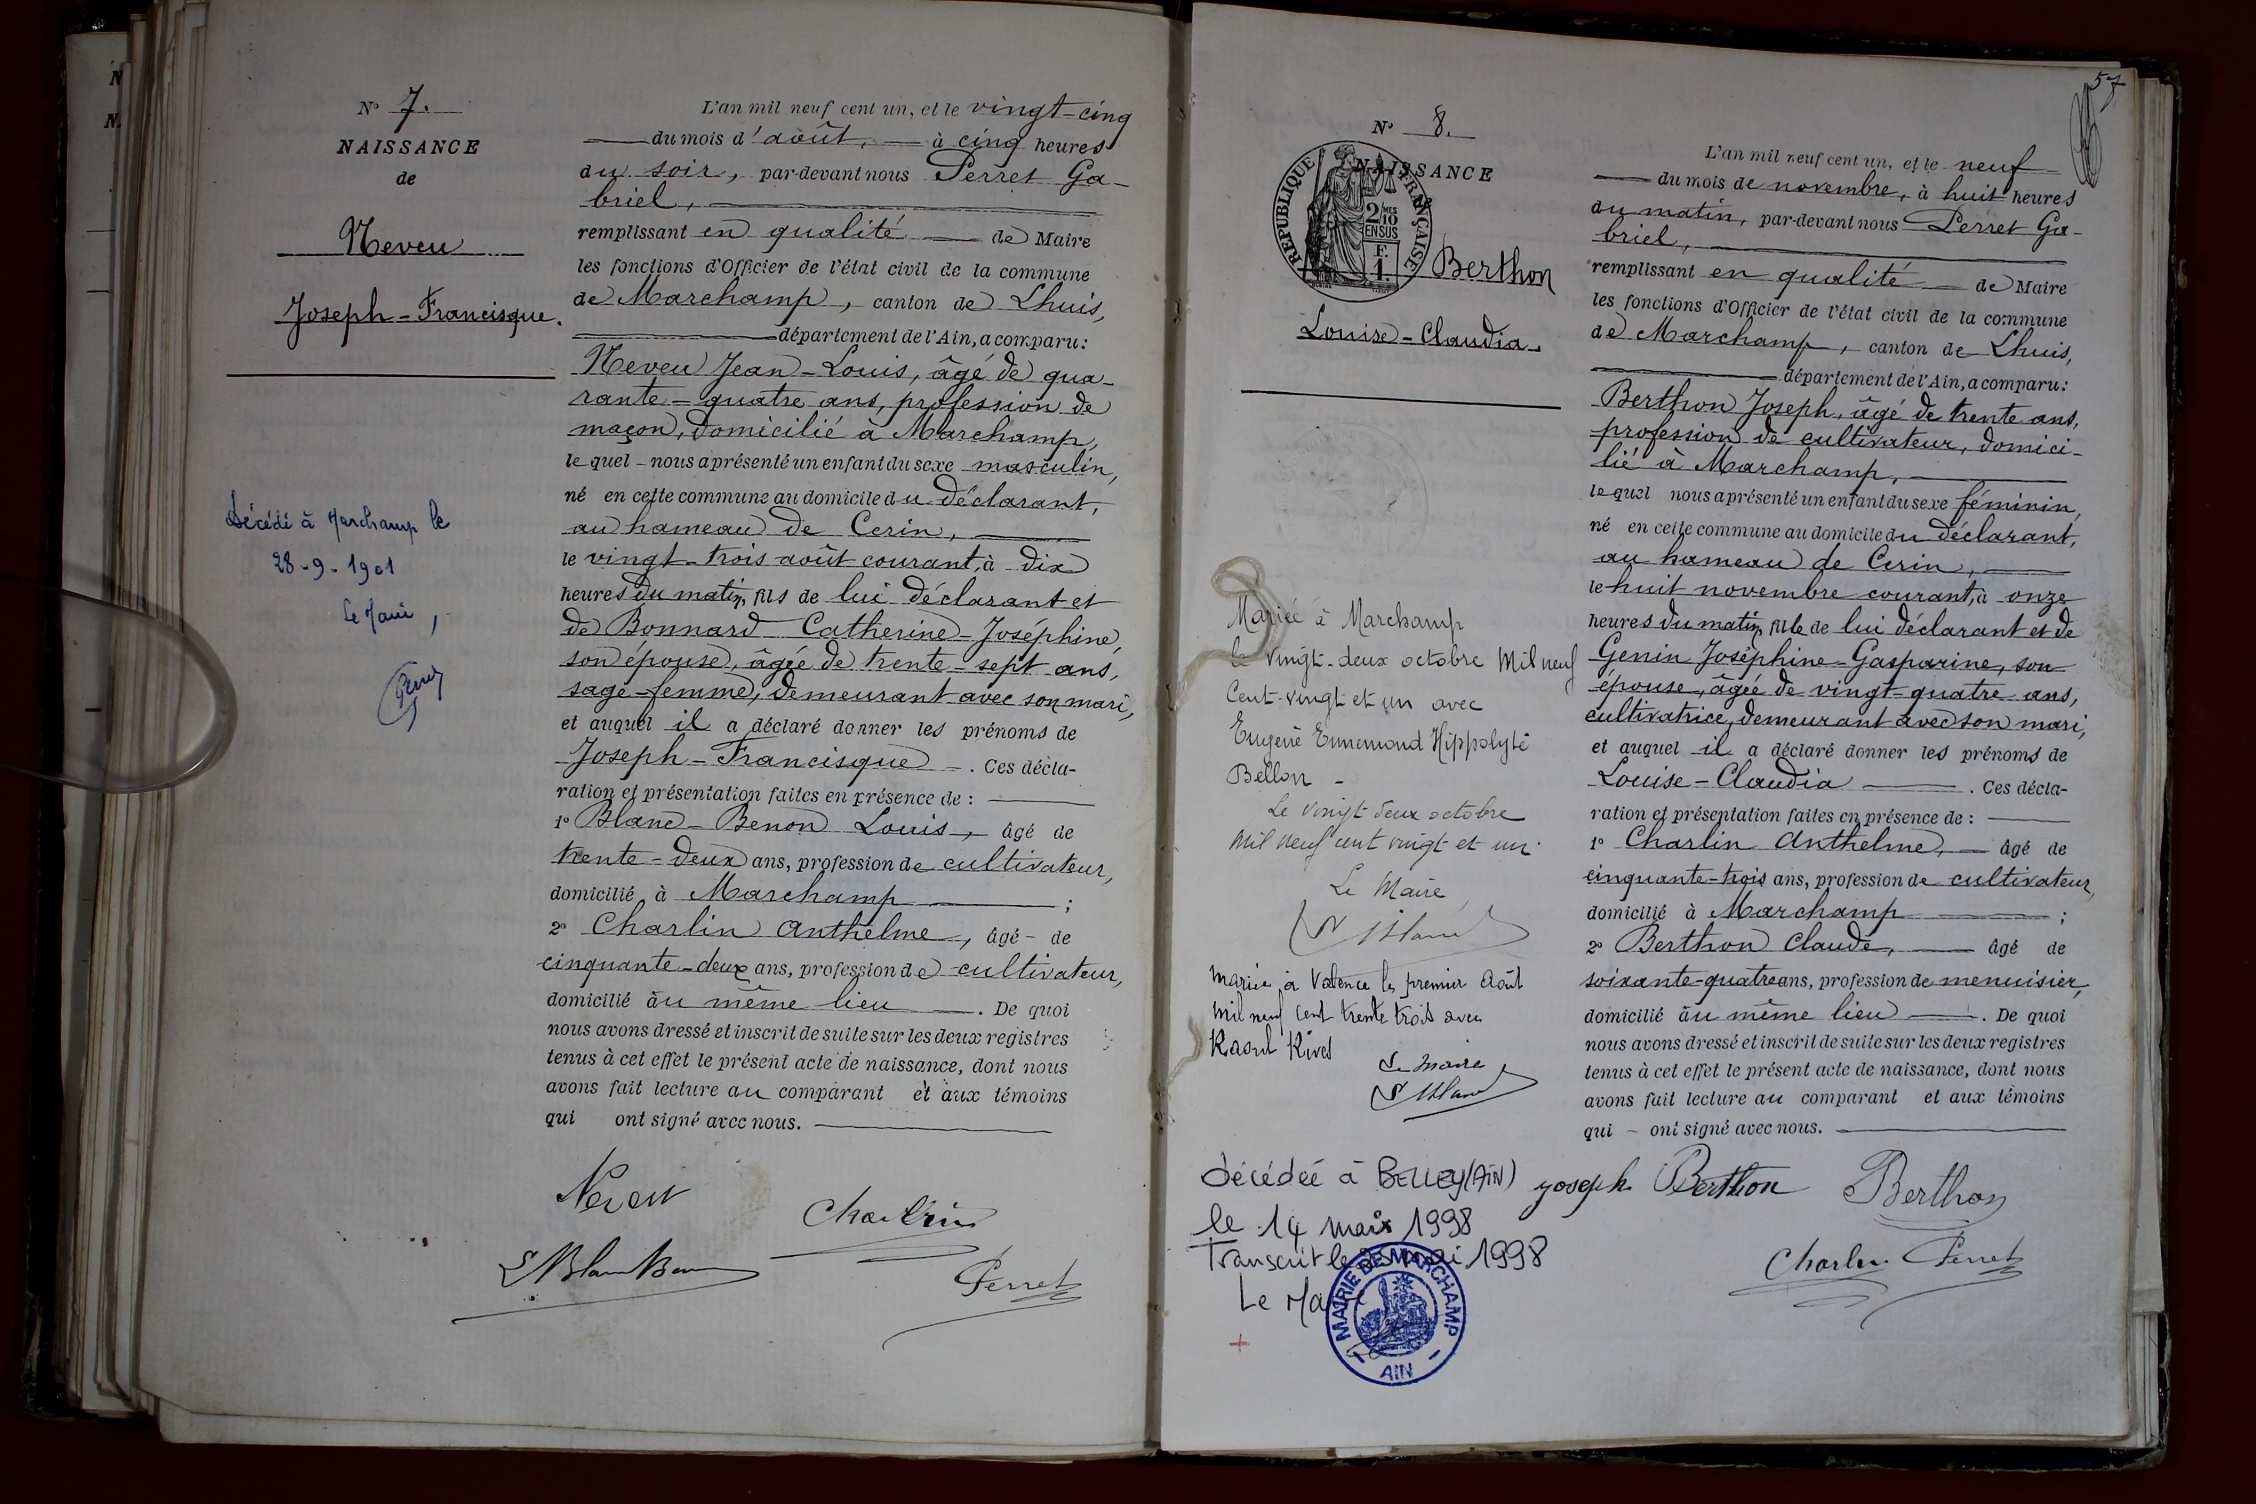 Nº 7.
NAISSANCE
de
Neveu
Joseph-Francisque.
Décédé à Marchamp le
28-9-1901
Le Maire,
Perret
L'an mil neuf cent un, et le vingt-cinq
du mois d'août, à cinq heures
du soir, par-devant nous Perret Ga-
briel,
remplissant en qualité de Maire
les fonctions d'Officier de l'état civil de la commune
de Marchamp, canton de Lhuis,
département de l'Ain, a comparu:
Neveu Jean-Louis, âgé de qua-
rante-quatre ans, profession de
maçon, domicilié à Marchamp,
lequel nous a présenté un enfant du sexe masculin,
né en cette commune au domicile du déclarant,
au hameau de Cerin,
le vingt-trois août courant, à dix
heures du matin, fils de lui déclarant et
de Bonnard Catherine-Joséphine,
son épouse, âgée de trente-sept ans,
sage-femme, demeurant avec son mari,
et auquel il a déclaré donner les prénoms de
Joseph-Francisque. Ces décla-
ration et présentation faites en présence de :
1º Blanc-Benon Louis, âgé de
trente-deux ans, profession de cultivateur,
domicilié à Marchamp ;
2º Charlin Anthelme, âgé de
cinquante-deux ans, profession de cultivateur,
domicilié au même lieu. De quoi
nous avons dressé et inscrit de suite sur les deux registres
tenus à cet effet le présent acte de naissance, dont nous
avons fait lecture au comparant et aux témoins
qui ont signé avec nous.
Neveu
Charlin
L Blanc Benon
Perret
57
Nº 8.
NAISSANCE
RÉPUBLIQUE FRANÇAISE
2/10 MES
EN SUS
F.
1.
Berthon
Louise-Claudia.
Mariée à Marchamp
le vingt-deux octobre Mil neuf
Cent-vingt et un avec
Eugène Ennemond Hippolyte
Bellon -
Le vingt deux octobre
mil neuf cent vingt et un.
Le Maire,
Mariée à Valence le premier Août
mil neuf cent trente trois avec
Raoul
Le Maire
Décédée à BELLEY (AIN)
le 14 mars 1998
Transcrit le mai 1998
Le Maire
MAIRIE DE MARCHAMP
AIN
L'an mil neuf cent un, et le neuf
du mois de novembre, à huit heures
du matin, par-devant nous Perret Ga-
briel,
remplissant en qualité de Maire
les fonctions d'Officier de l'état civil de la commune
de Marchamp, canton de Lhuis,
département de l'Ain, a comparu:
Berthon Joseph, âgé de trente ans,
profession de cultivateur, domici-
lié à Marchamp,
lequel nous a présenté un enfant du sexe féminin,
né en cette commune au domicile du déclarant,
au hameau de Cerin,
le huit novembre courant, à onze
heures du matin, fille de lui déclarant et de
Genin Joséphine-Gasparine, son
épouse, âgée de vingt-quatre ans,
cultivatrice, demeurant avec son mari,
et auquel il a déclaré donner les prénoms de
Louise-Claudia. Ces décla-
ration et présentation faites en présence de :
1º Charlin Anthelme, âgé de
cinquante-trois ans, profession de cultivateur,
domicilié à Marchamp ;
2º Berthon Claude, âgé de
soixante-quatre ans, profession de menuisier,
domicilié au même lieu. De quoi
nous avons dressé et inscrit de suite sur les deux registres
tenus à cet effet le présent acte de naissance, dont nous
avons fait lecture au comparant et aux témoins
qui - ont signé avec nous.
Joseph Berthon
Berthon
Charlin
Perret